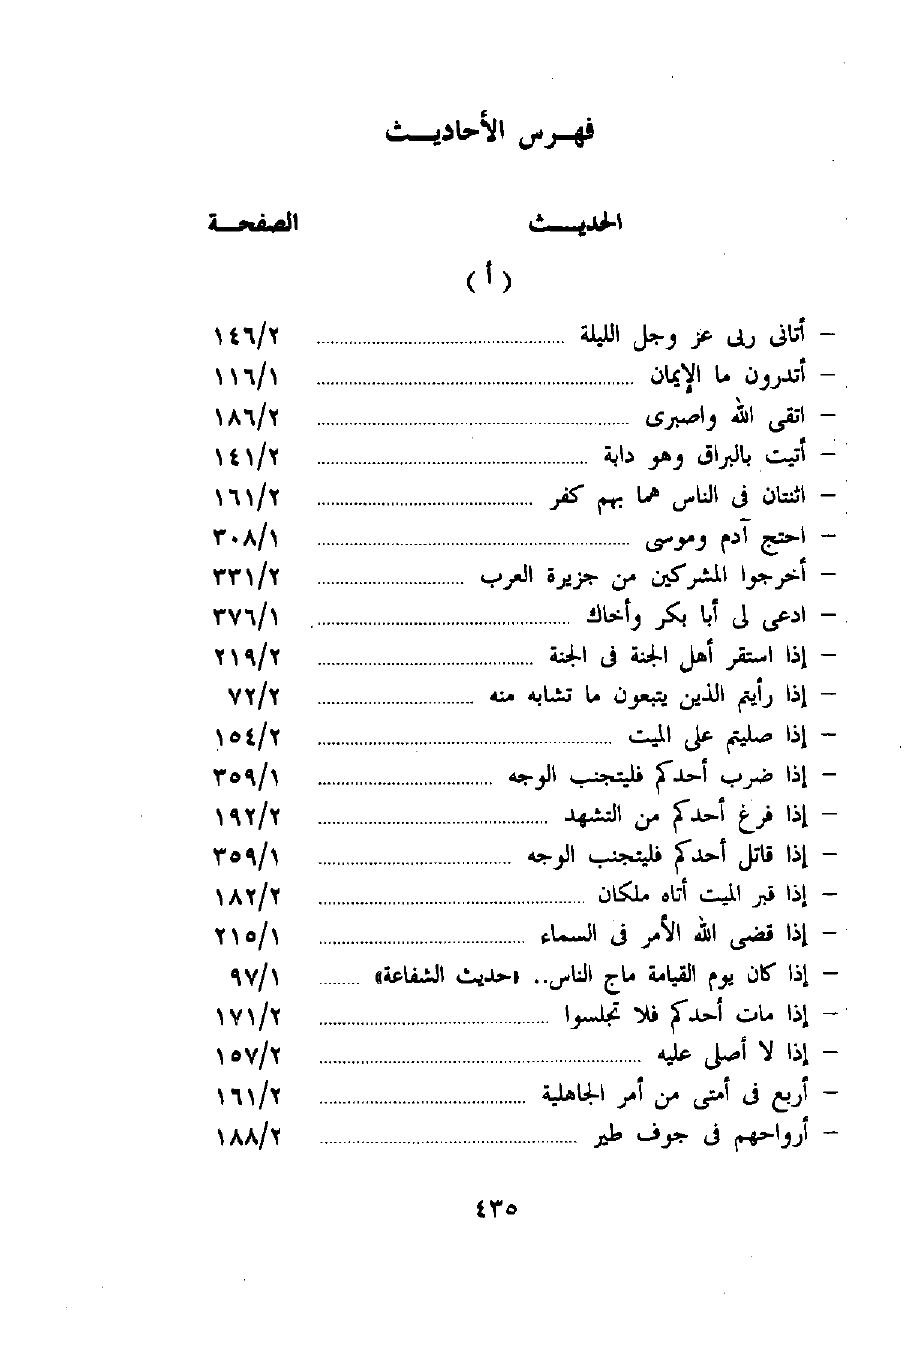 فهرس الأحاديث
الحديث الصفحة
( أ )
– أتانى ربى عز وجل الليلة ........ ١٤٦/٢
– أتدرون ما الإيمان ........ ١١٦/١
– اتقى الله واصبرى ........ ١٨٦/٢
– أتيت بالبراق وهو دابة ........ ١٤١/٢
– اثنتان فى الناس هما بهم كفر ........ ١٦١/٢
– احتج آدم وموسى ........ ٣٠٨/١
– أخرجوا المشركين من جزيرة العرب ........ ٣٣١/٢
– ادعى لى أبا بكر وأخاك ........ ٣٧٦/١
– إذا استقر أهل الجنة فى الجنة ........ ٢١٩/٢
– إذا رأيتم الذين يتبعون ما تشابه منه ........ ٧٢/٢
– إذا صليتم على الميت ........ ١٥٤/٢
– إذا ضرب أحدكم فليتجنب الوجه ........ ٣٥٩/١
– إذا فرغ أحدكم من التشهد ........ ١٩٢/٢
– إذا قاتل أحدكم فليتجنب الوجه ........ ٣٥٩/١
– إذا قبر الميت أتاه ملكان ........ ١٨٢/٢
– إذا قضى الله الأمر فى السماء ........ ٢١٥/١
– إذا كان يوم القيامة ماج الناس.. «حديث الشفاعة» ........ ٩٧/١
– إذا مات أحدكم فلا تجلسوا ........ ١٧١/٢
– إذا لا أصلى عليه ........ ١٥٧/٢
– أربع فى أمتى من أمر الجاهلية ........ ١٦١/٢
– أرواحهم فى جوف طير ........ ١٨٨/٢
٤٣٥